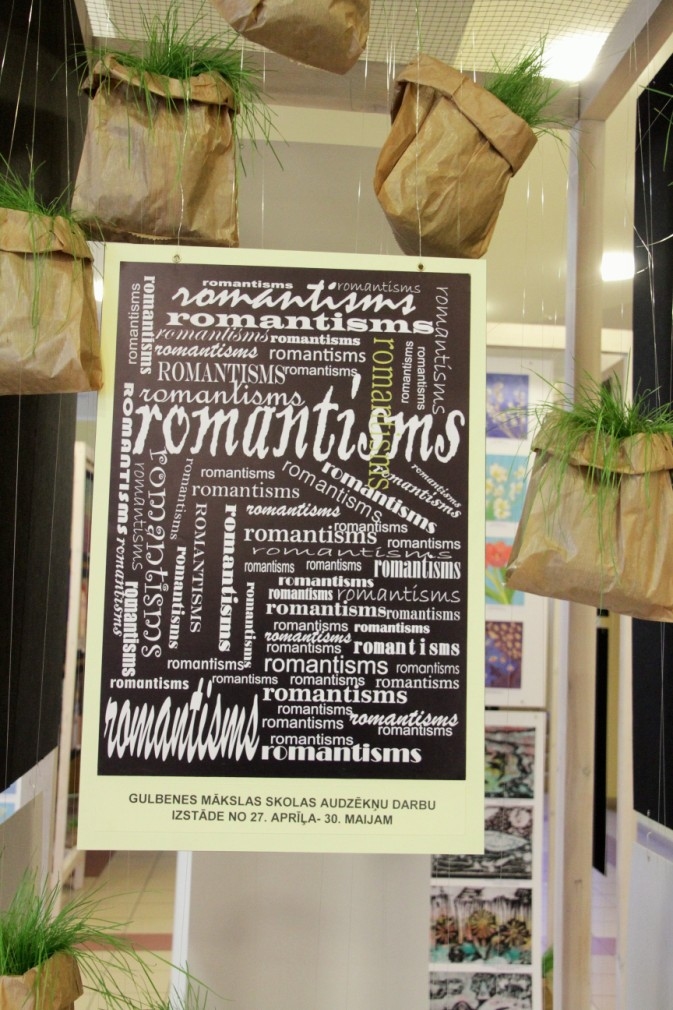 romantisms
romantisms
romantisms
romantisms
romantisms
romantisms
romantisms
romantisms
romantisms
romantisms
romantisms
romantisms
ROMANTISMS
romantisms
romantisms
romantisms
romantisms
romantisms
romantisms
romantisms
romantisms
romantisms
romantisms
romantisms
romantisms
romantisms
romantisms
romantisms
romantisms
ROMANTISMS
romantisms
romantisms
romantisms
romantisms
romantisms
romantisms
romantisms
romantisms
romantisms
romantisms
romantisms
romantisms
romantisms
romantisms
romantisms
romantisms
romantisms
romantisms
romantisms
romantisms
romantisms
romantisms
romantisms
romantisms
romantisms
romantisms
romantisms
romantisms
romantisms
romantisms
romantisms
romantisms
romantisms
romantisms
romantisms
romantisms
romantisms
romantisms
romantisms
romantisms
romantisms
romantisms
romantisms
GULBENES MĀKSLAS SKOLAS AUDZĒKŅU DARBU
IZSTĀDE NO 27. APRĪĻA- 30. MAIJAM